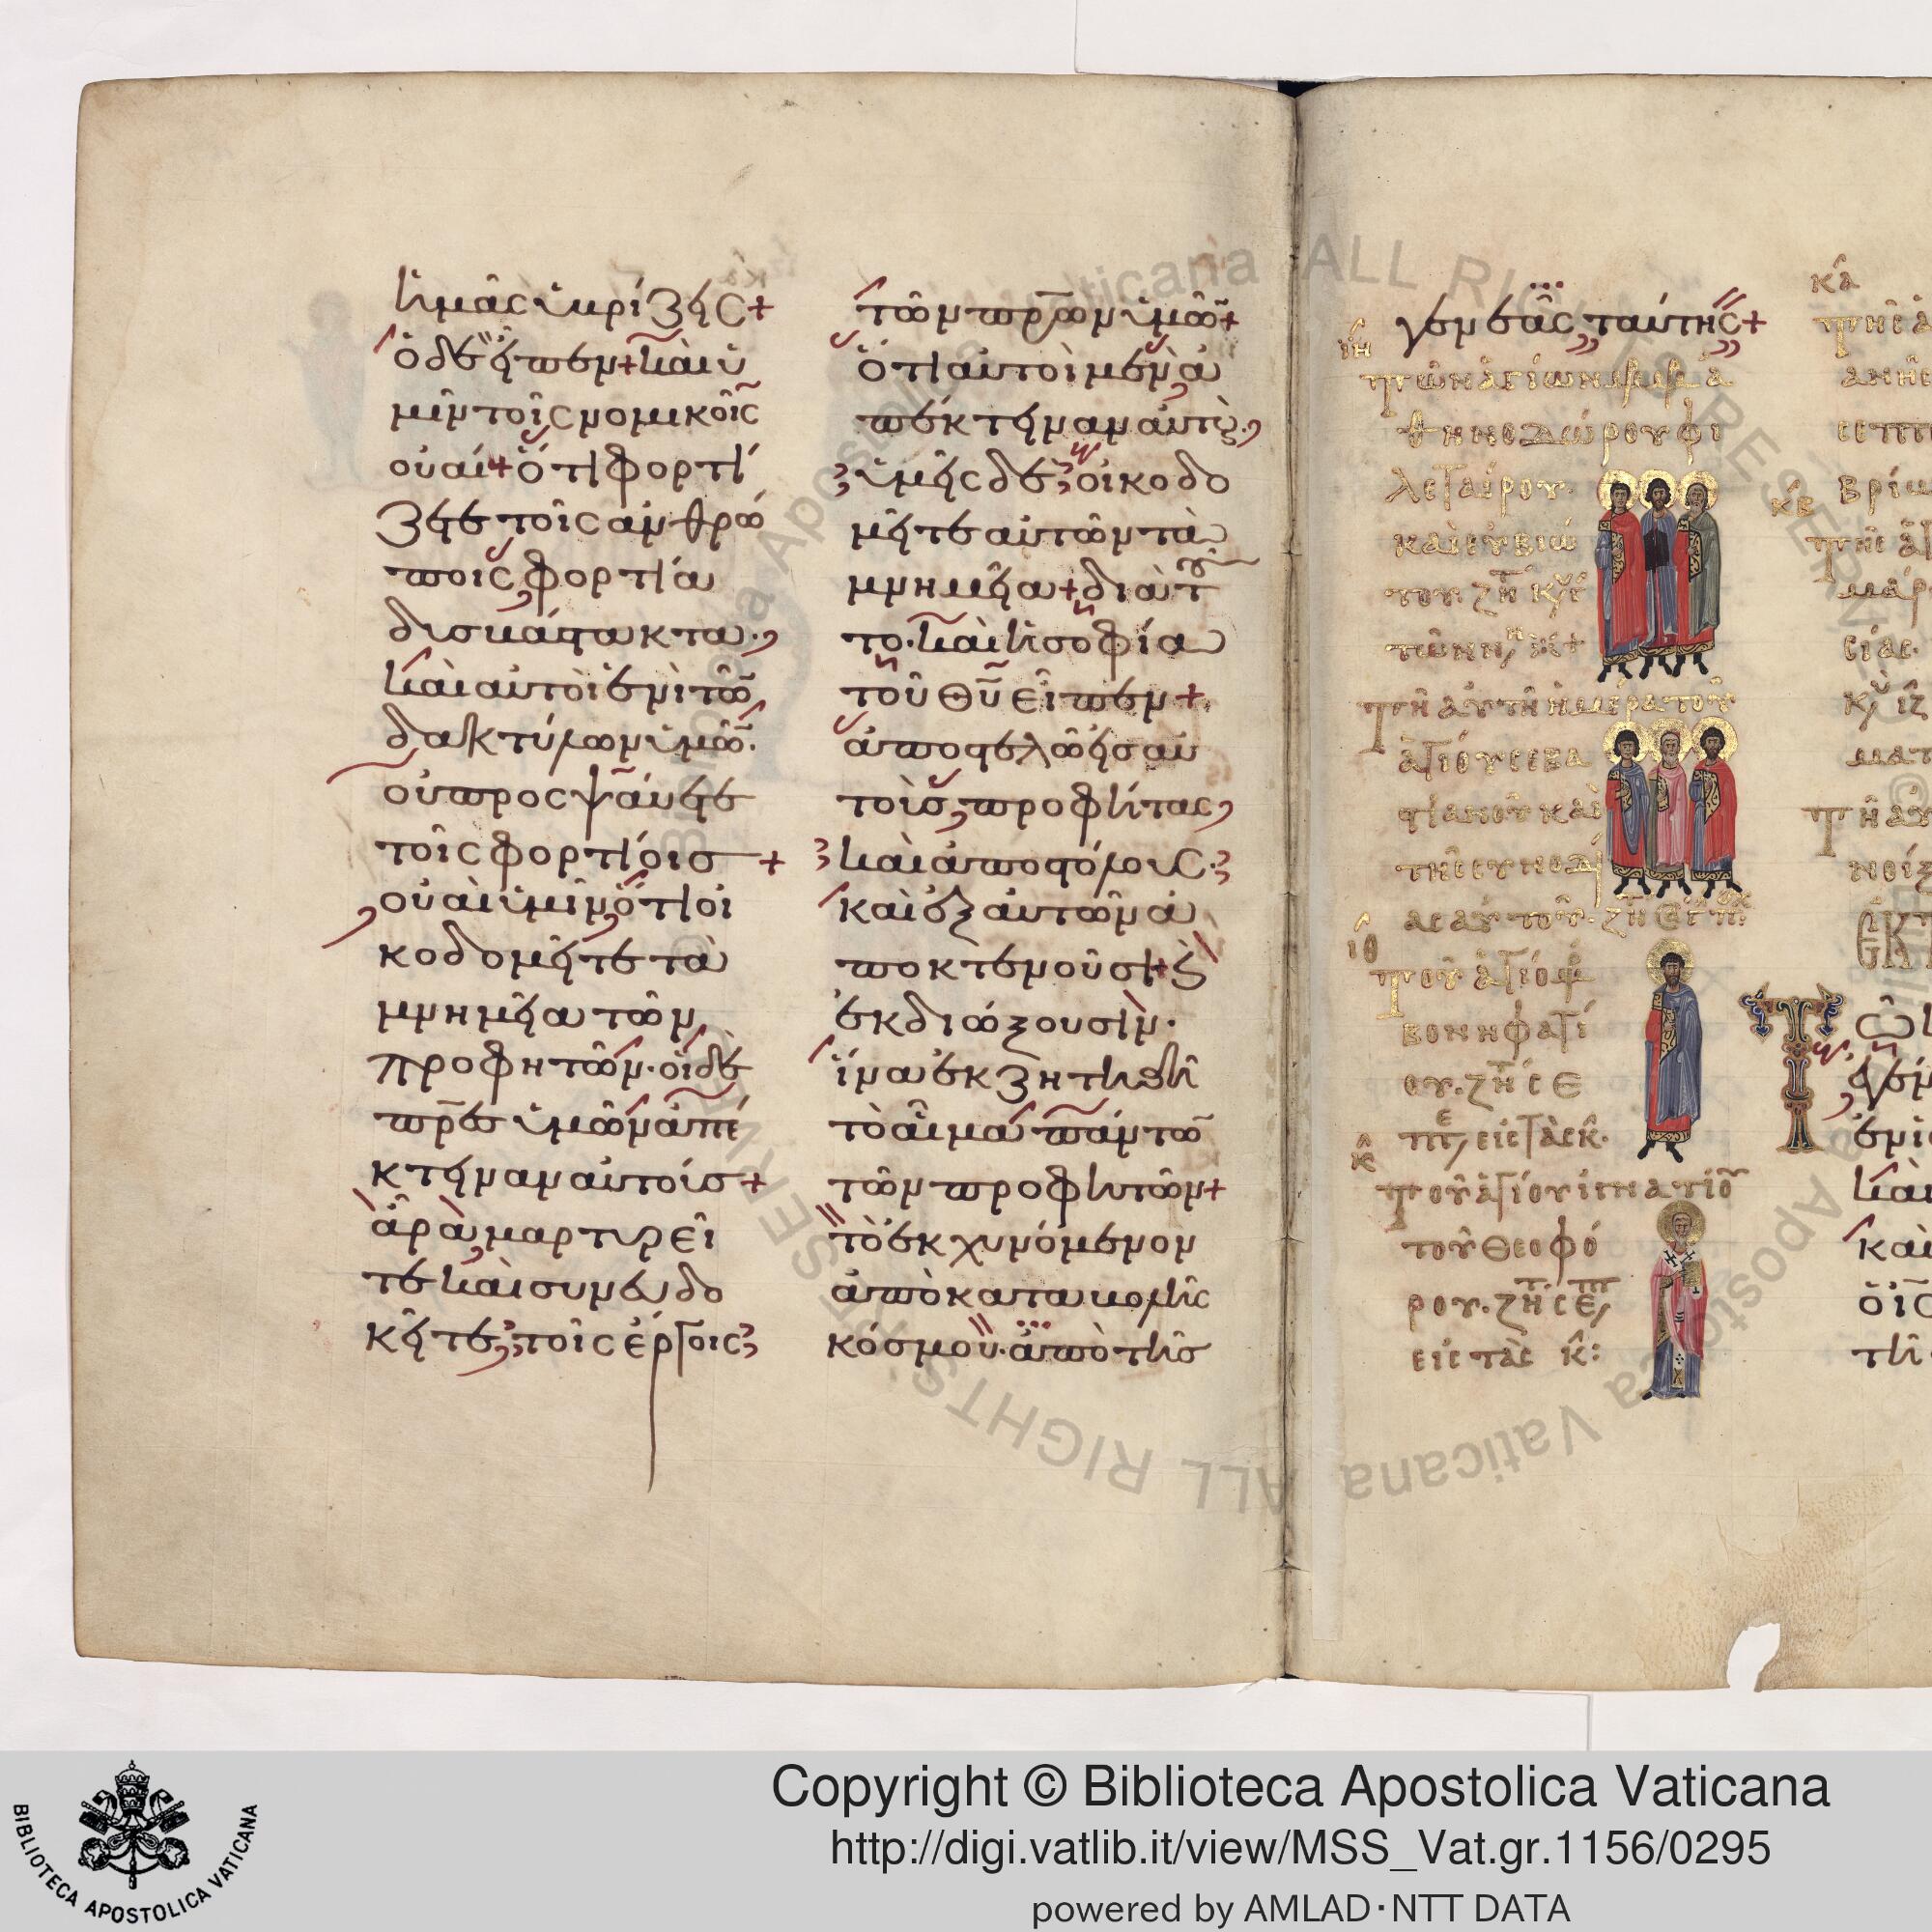 ἡμᾶς ὑβρίζεις+
ὁ δὲ εἶπεν+ καὶ ὑ
μῖν τοῖς νομικοῖς
οὐαί+ ὅτι φορτί
ζετε τοῖς ἀνθρώ
ποις, φορτία
δυσβάστακτα.,
καὶ αὐτοὶ ἑνὶ τῶ
δακτύλων ὑμῶ.
οὐ προςψαύετε
τοῖς φορτίοις+
οὐαὶ ὑμῖν, ὅτι οἰ
κοδομεῖτε τὰ
μνημεῖα τῶν
προφητῶν. οἱ δὲ
πρ̅ες ὑμῶν ἀπέ
κτειναν αὐτοίς+
ἄρα, μαρτυρεῖ
τε καὶ συνευδο
κεῖτε, τοῖς ἔργοις
τῶν πρ̅ων ὑμῶ+
ὅτι αὐτοὶ μὲν ἀ
πέκτειναν αὐτȣ̀.,
ὑμεῖς δὲ οἰκοδο
μεῖτε αὐτῶν τὰ
μνημεῖα+ διὰ τȣ͂
το. καὶ ἡ σοφία
τοῦ θ̅υ̅ εἶπεν+
ἀποστελῶ εἰς αὐ
τοὺς, προφήτας,
καὶ ἀποστόλους.
καὶ ἐξ αὐτῶν ἀ
ποκτενοῦσι+ ϗ
ἐκδιώξουσιν.
ἵνα ἐκζητηθῆ
τὸ αἷμα πάντω
τῶν προφητῶν+
τὸ ἐκχυνόμενον
ἀπὸ καταβολῆς
κόσμου. ἀπὸ τῆς
γενεᾶς, ταύτης+
ιη
τῶν ἁγίων
λεταίρου.
τῆ αὐτῆ ἡμέρα τοῦ
ἁγίου σεβα
στιανοῦ καὶ
τῆς συνοδί
ας αὐτοῦ.
ιθ
τοῦ ἁγίου
βονηφατί
ου. ζη σε
εἰς τὰς κ.
κ
τοῦ ἁγίου ἰγνατίου
τοῦ θεοφό
ρου. ζη σε
εἰς τὰς κ:
κα
κβ
Copyright © Biblioteca Apostolica Vaticana
http://digi.vatlib.it/view/MSS_Vat.gr.1156/0295
powered by AMLAD·NTT DATA
BIBLIOTECA APOSTOLICA VATICANA